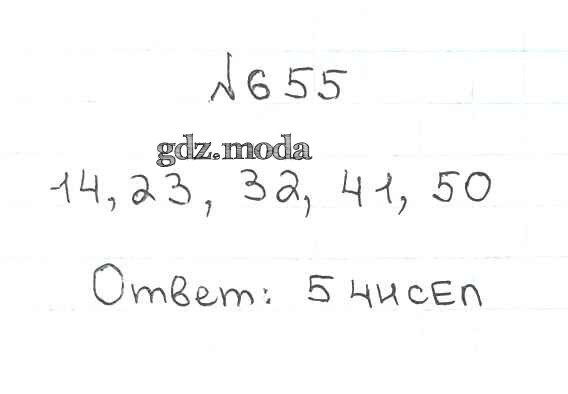 № 655
gdz.moda
14, 23, 32, 41, 50
Ответ: 5 чисел